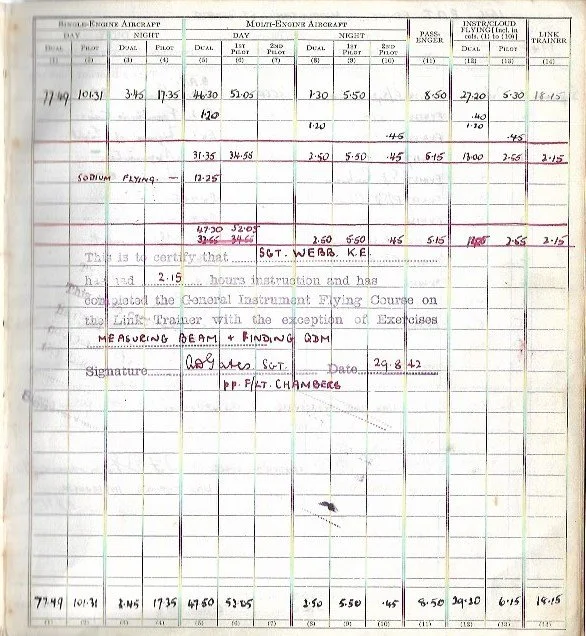 SINGLE-ENGINE AIRCRAFT MULTI-ENGINE AIRCRAFT PASS-ENGER INSTR/CLOUD FLYING [Incl. in cols. (1) to (10)] LINK TRAINER
DAY NIGHT DAY NIGHT
DUAL PILOT DUAL PILOT DUAL 1ST PILOT 2ND PILOT DUAL 1ST PILOT 2ND PILOT DUAL PILOT
(1) (2) (3) (4) (5) (6) (7) (8) (9) (10) (11) (12) (13) (14)
77.49 101.31 3.45 17.35 46.30 52.05 1.30 5.50 8.50 27.20 5.30 18.15
1.20 .40
1.20 1.20
.45 .45
31.35 34.55 2.50 5.50 .45 5.15 13.00 2.55 2.15
SODIUM FLYING. — 12.25
47.30 52.05
2.50 5.50 .45 5.15 2.55 2.15
This is to certify that SGT. WEBB. K.E.
had 2.15 hours instruction and has
completed the General Instrument Flying Course on
the Link Trainer with the exception of Exercises
MEASURING BEAM + FINDING QDM
Signature SGT. Date 29.8.42
pp. F/LT. CHAMBERS
77.49 101.31 3.45 17.35 47.50 52.05 2.50 5.50 .45 8.50 29.20 6.15 18.15
(1) (2) (3) (4) (5) (6) (7) (8) (9) (10) (11) (12) (13) (14)